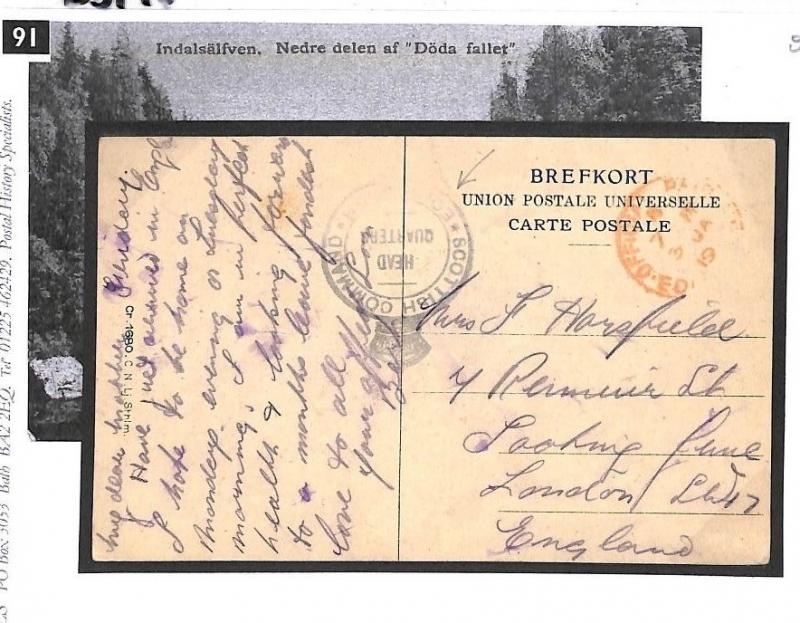 91
Indalsälfven, Nedre delen af "Döda fallet"
PO Box 3053 Bath BA2 2EQ. Tel 01225 462429. Postal History Specialists.
BREFKORT
UNION POSTALE UNIVERSELLE
CARTE POSTALE
SCOTTISH COMMAND
HEAD
QUARTERS
Mrs F Horsfield
Tooting June
London SW17
England
My dear mother Sunday.
Have just arrived in
I hope to be home on
monday evening or tuesday
morning. I am in perfect
health & looking forward
to a months leave fondest
love to all
Your affec Son
Cr. 1680. C. N:s Lj. Sthlm.